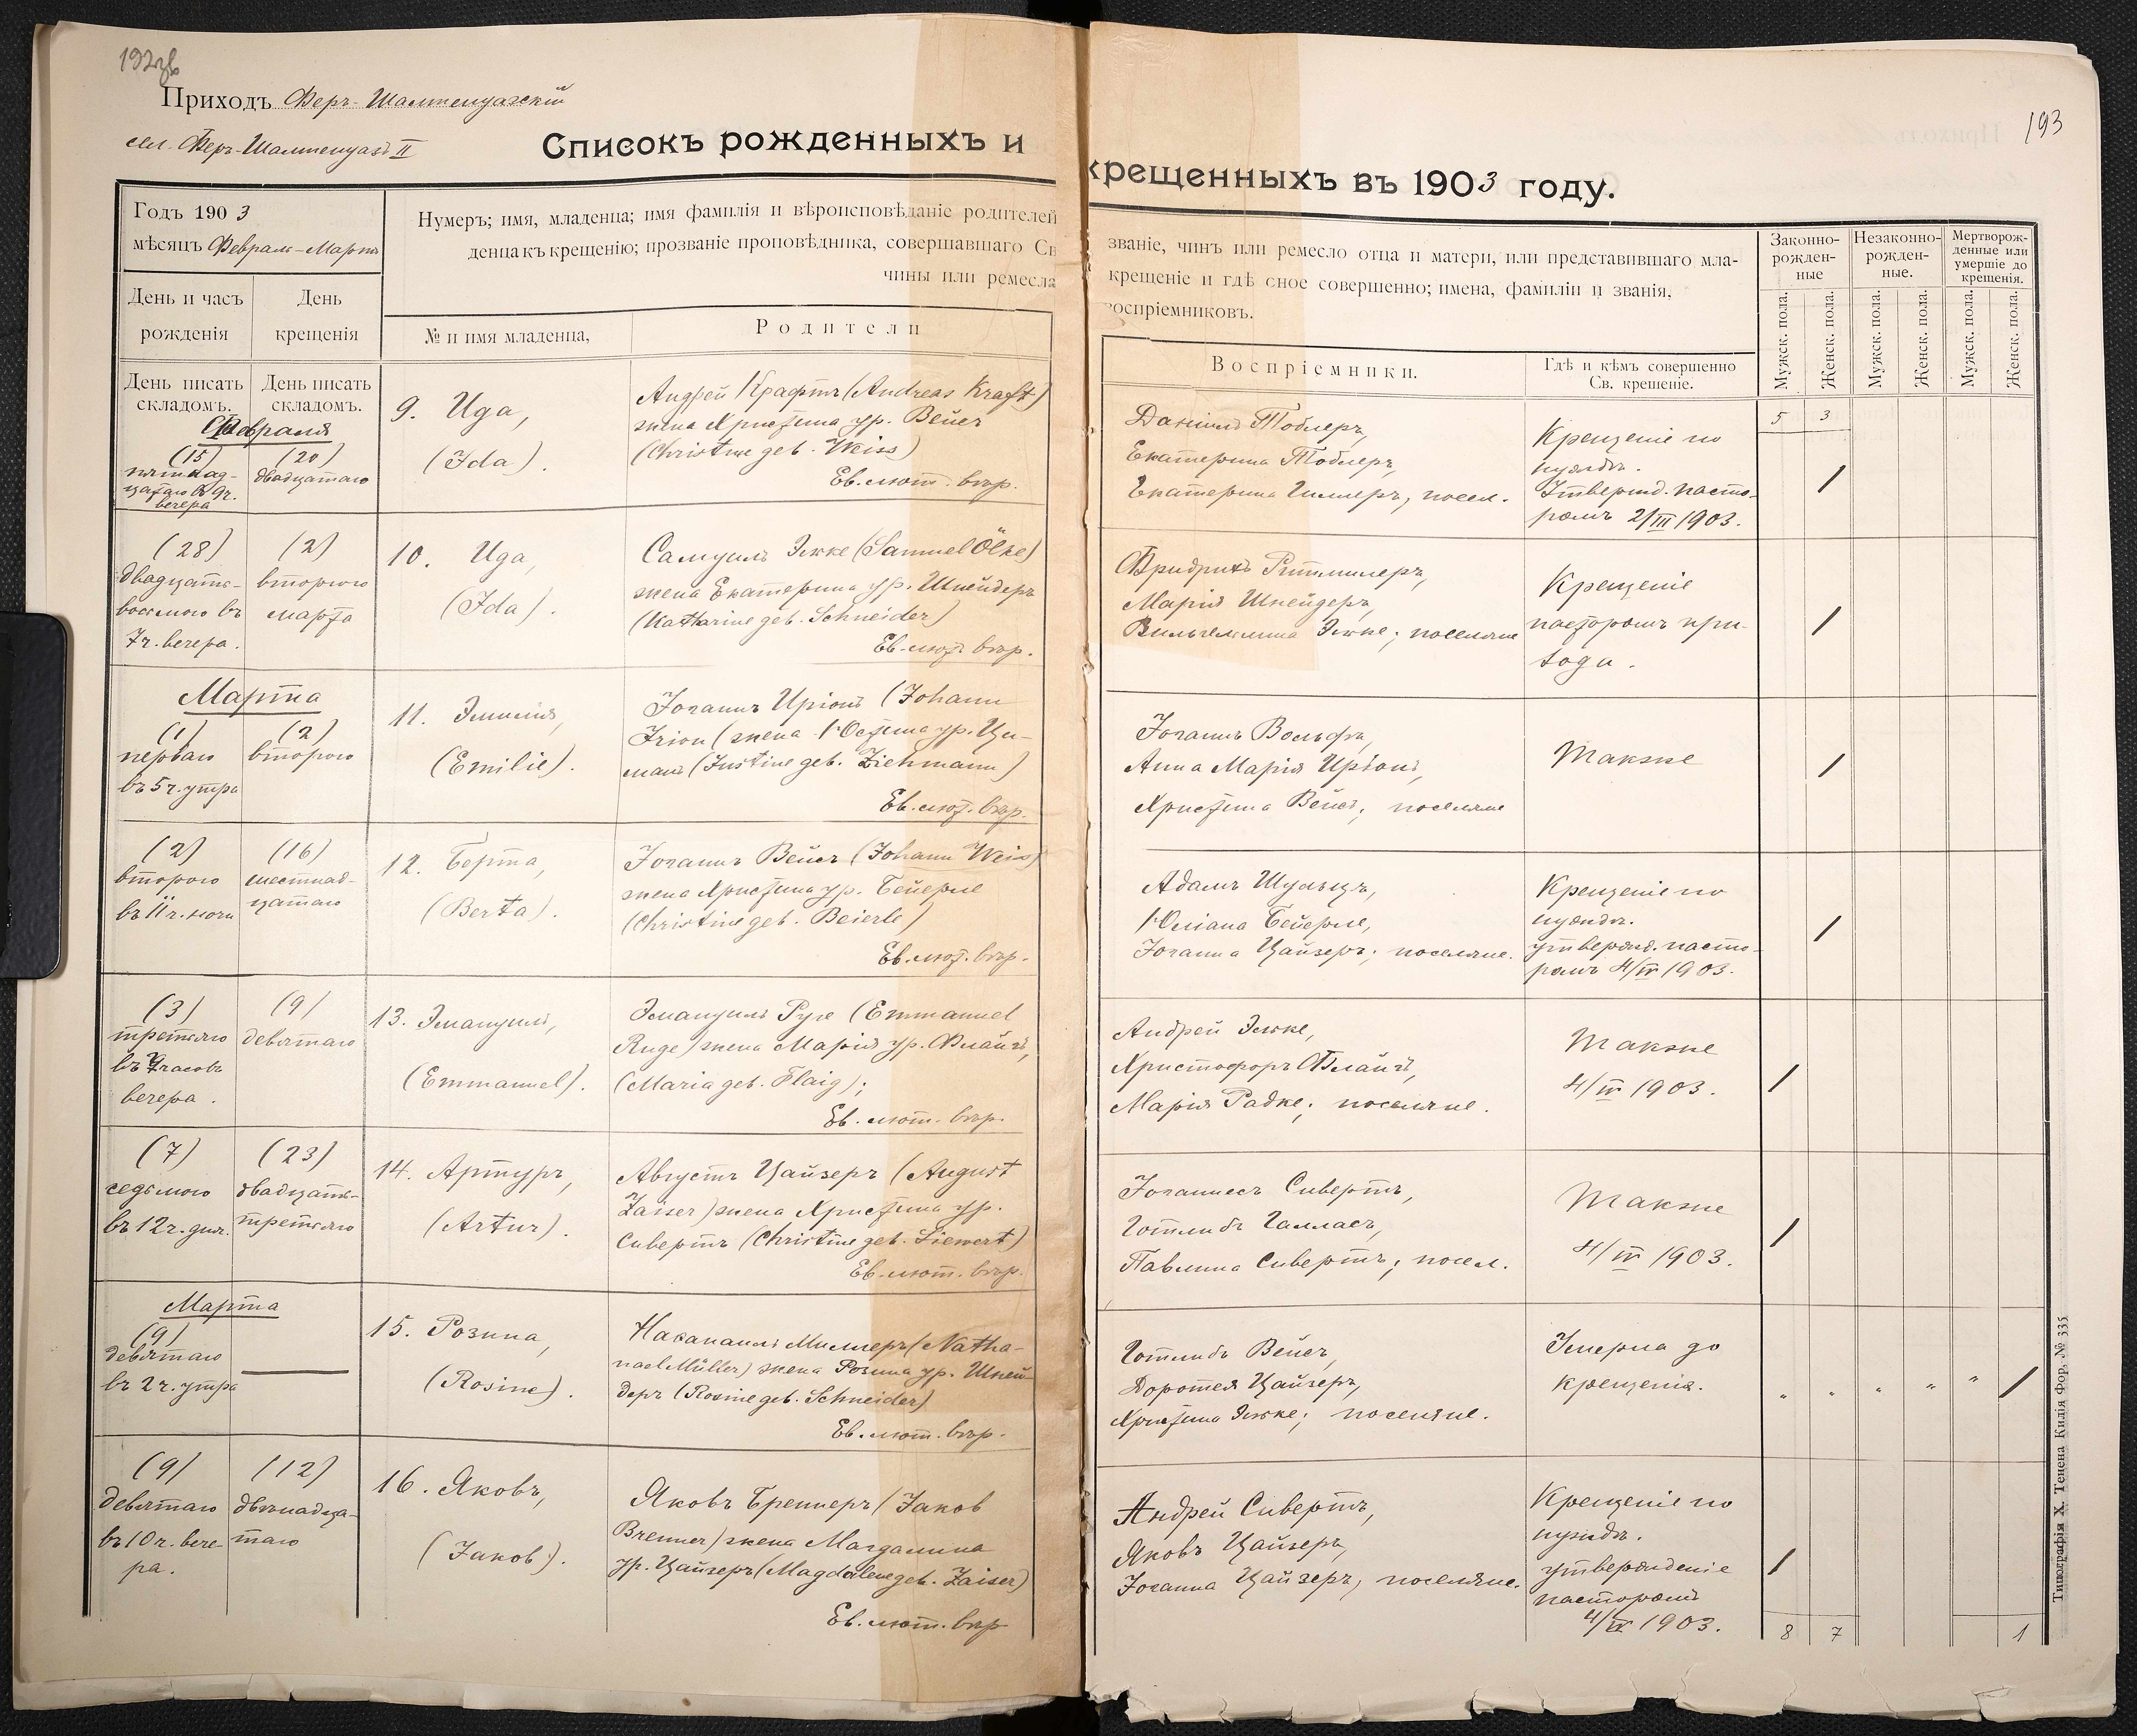 192зв
Приходъ Феръ-Шампенуазскій
сел. Феръ-Шампенуазъ II
Списокъ рожденныхъ и
Годъ 1903
мѣсяцъ Февраль-Мартъ
Нумеръ; имя, младенца; имя фамилія и вѣроисповѣданіе родителей
денца къ крещенію; прозваніе проповѣдника, совершавшаго Св
чины или ремесла
День и часъ рожденія
День крещенія
№ и имя младенца,
Родители
День писать складомъ.
День писать складомъ.
Февраля
(15)
пятнад-
цатаго в 9 ч.
вечера
(20)
двадцатаго
9. Ида,
(Ida).
Андрей Крафтъ (Andreas Kraft)
жена Христина ур. Вейсъ
(Christine geb. Weiss)
Ев. лют. вѣр.
(28)
двадцать-
восьмого въ
7 ч. вечера.
(2)
второго
марта
10. Ида,
(Ida).
Самуилъ Элжке (Samuel Ölke)
жена Екатерина ур. Шнейдеръ
(Katharine geb. Schneider)
Ев. лют. вѣр.
Марта
(1)
перваго
въ 5 ч. утра
(2)
второго
11. Эмилія,
(Emilie).
Іоганнъ Иріонъ (Johann
Irion) жена Юстина ур. Ци-
манъ (Justine geb. Ziehmann)
Ев. лют. вѣр.
(2)
второго
въ 11 ч. ночи
(16)
шестнад-
цатаго
12. Берта,
(Berta).
Іоганнъ Вейсъ (Johann Weiss)
жена Христина ур. Бейерле
(Christine geb. Beierle)
Ев. лют. вѣр.
(3)
третьяго
въ 7 часовъ
вечера.
(9)
девятаго
13. Эмануилъ,
(Emmanuel).
Эмануилъ Руге (Emmanuel
Ruge) жена Марія ур. Флайгъ,
(Maria geb. Flaig);
Ев. лют. вѣр.
(7)
седьмого
въ 12 ч. дня.
(23)
двадцать-
третьяго
14. Артуръ,
(Artur).
Августъ Цайзеръ (August
Zaiser) жена Христина ур.
Сивертъ (Christine geb. Siewert)
Ев. лют. вѣр.
Марта
(9)
девятаго
въ 2 ч. утра
15. Розина,
(Rosine).
Наѳанаилъ Миллеръ (Natha-
nael Müller) жена Розина ур. Шней-
деръ (Rosine geb. Schneider)
Ев. лют. вѣр.
(9)
девятаго
въ 10 ч. вече-
ра.
(12)
двѣнадца-
таго
16. Яковъ,
(Jakob).
Яковъ Бреннеръ (Jakob
Brenner) жена Магдалина
ур. Цайзеръ (Magdalene geb. Zaiser)
Ев. лют. вѣр
193
крещенныхъ въ 1903 году.
званіе, чинъ или ремесло отца и матери, или представившаго мла-
крещеніе и гдѣ оное совершенно; имена, фамиліи и званія,
воспріемниковъ.
Воспріемники.
Гдѣ и кѣмъ совершенно
Св. крещеніе.
Законно-
рожден-
ные
Незаконно-
рожден-
ные.
Мертворож-
денные или
умершіе до
крещенія.
Мужск. пола.
Женск. пола.
Мужск. пола.
Женск. пола.
Мужск. пола.
Женск. пола.
5 3
Даніилъ Тоблеръ,
Екатерина Тоблеръ,
Екатерина Гиллеръ, посел.
Крещеніе по
нуждѣ.
Утвержд. пасто-
ромъ 2/III 1903.
/
Фридрихъ Ритмиллеръ,
Марія Шнейдеръ,
Вильгельмина Элжке; поселяне
Крещеніе
пасторомъ при-
хода.
/
Іоганнъ Вольфъ,
Анна Марія Иріонъ,
Христина Вейсъ; поселяне
Также
/
Адамъ Шульцъ,
Юліана Бейерле,
Іоганна Цайзеръ; поселяне.
Крещеніе по
нуждѣ.
утвержд. пасто-
ромъ 4/IV 1903.
/
Андрей Элжке,
Христофоръ Флайгъ,
Марія Радке; поселяне.
Также
4/IV 1903.
/
Іоганнесъ Сивертъ,
Готлибъ Галласъ,
Павлина Сивертъ; посел.
Также
4/IV 1903.
/
Готлибъ Вейсъ,
Доротея Цайзеръ,
Христина Элжке; поселяне.
Умерла до
крещенія.
" " " " " /
Андрей Сивертъ,
Яковъ Цайзеръ,
Іоганна Цайзеръ, поселяне.
Крещеніе по
нуждѣ.
утвержденіе
пасторомъ
4/IV 1903.
/
8 7 1
Типографія Х. Тенена Килія Фор. № 335